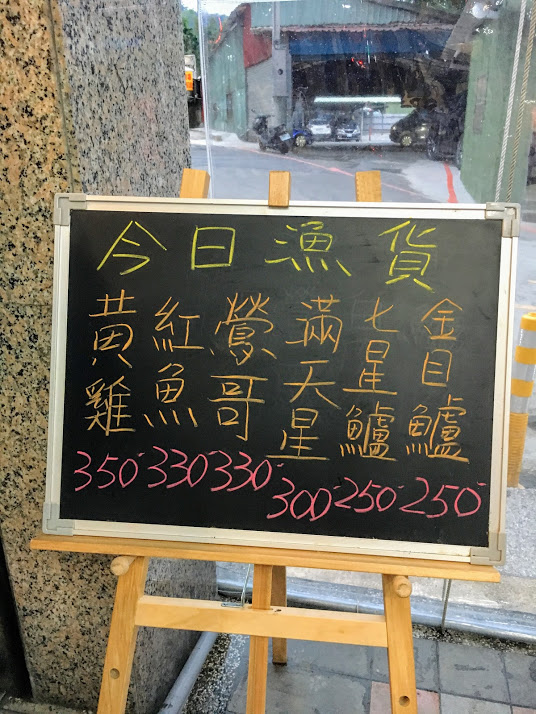 今日漁貨
金目鱸
250
七星鱸
250
滿天星
300
鶯哥
330
紅魚
330
黃雞
350